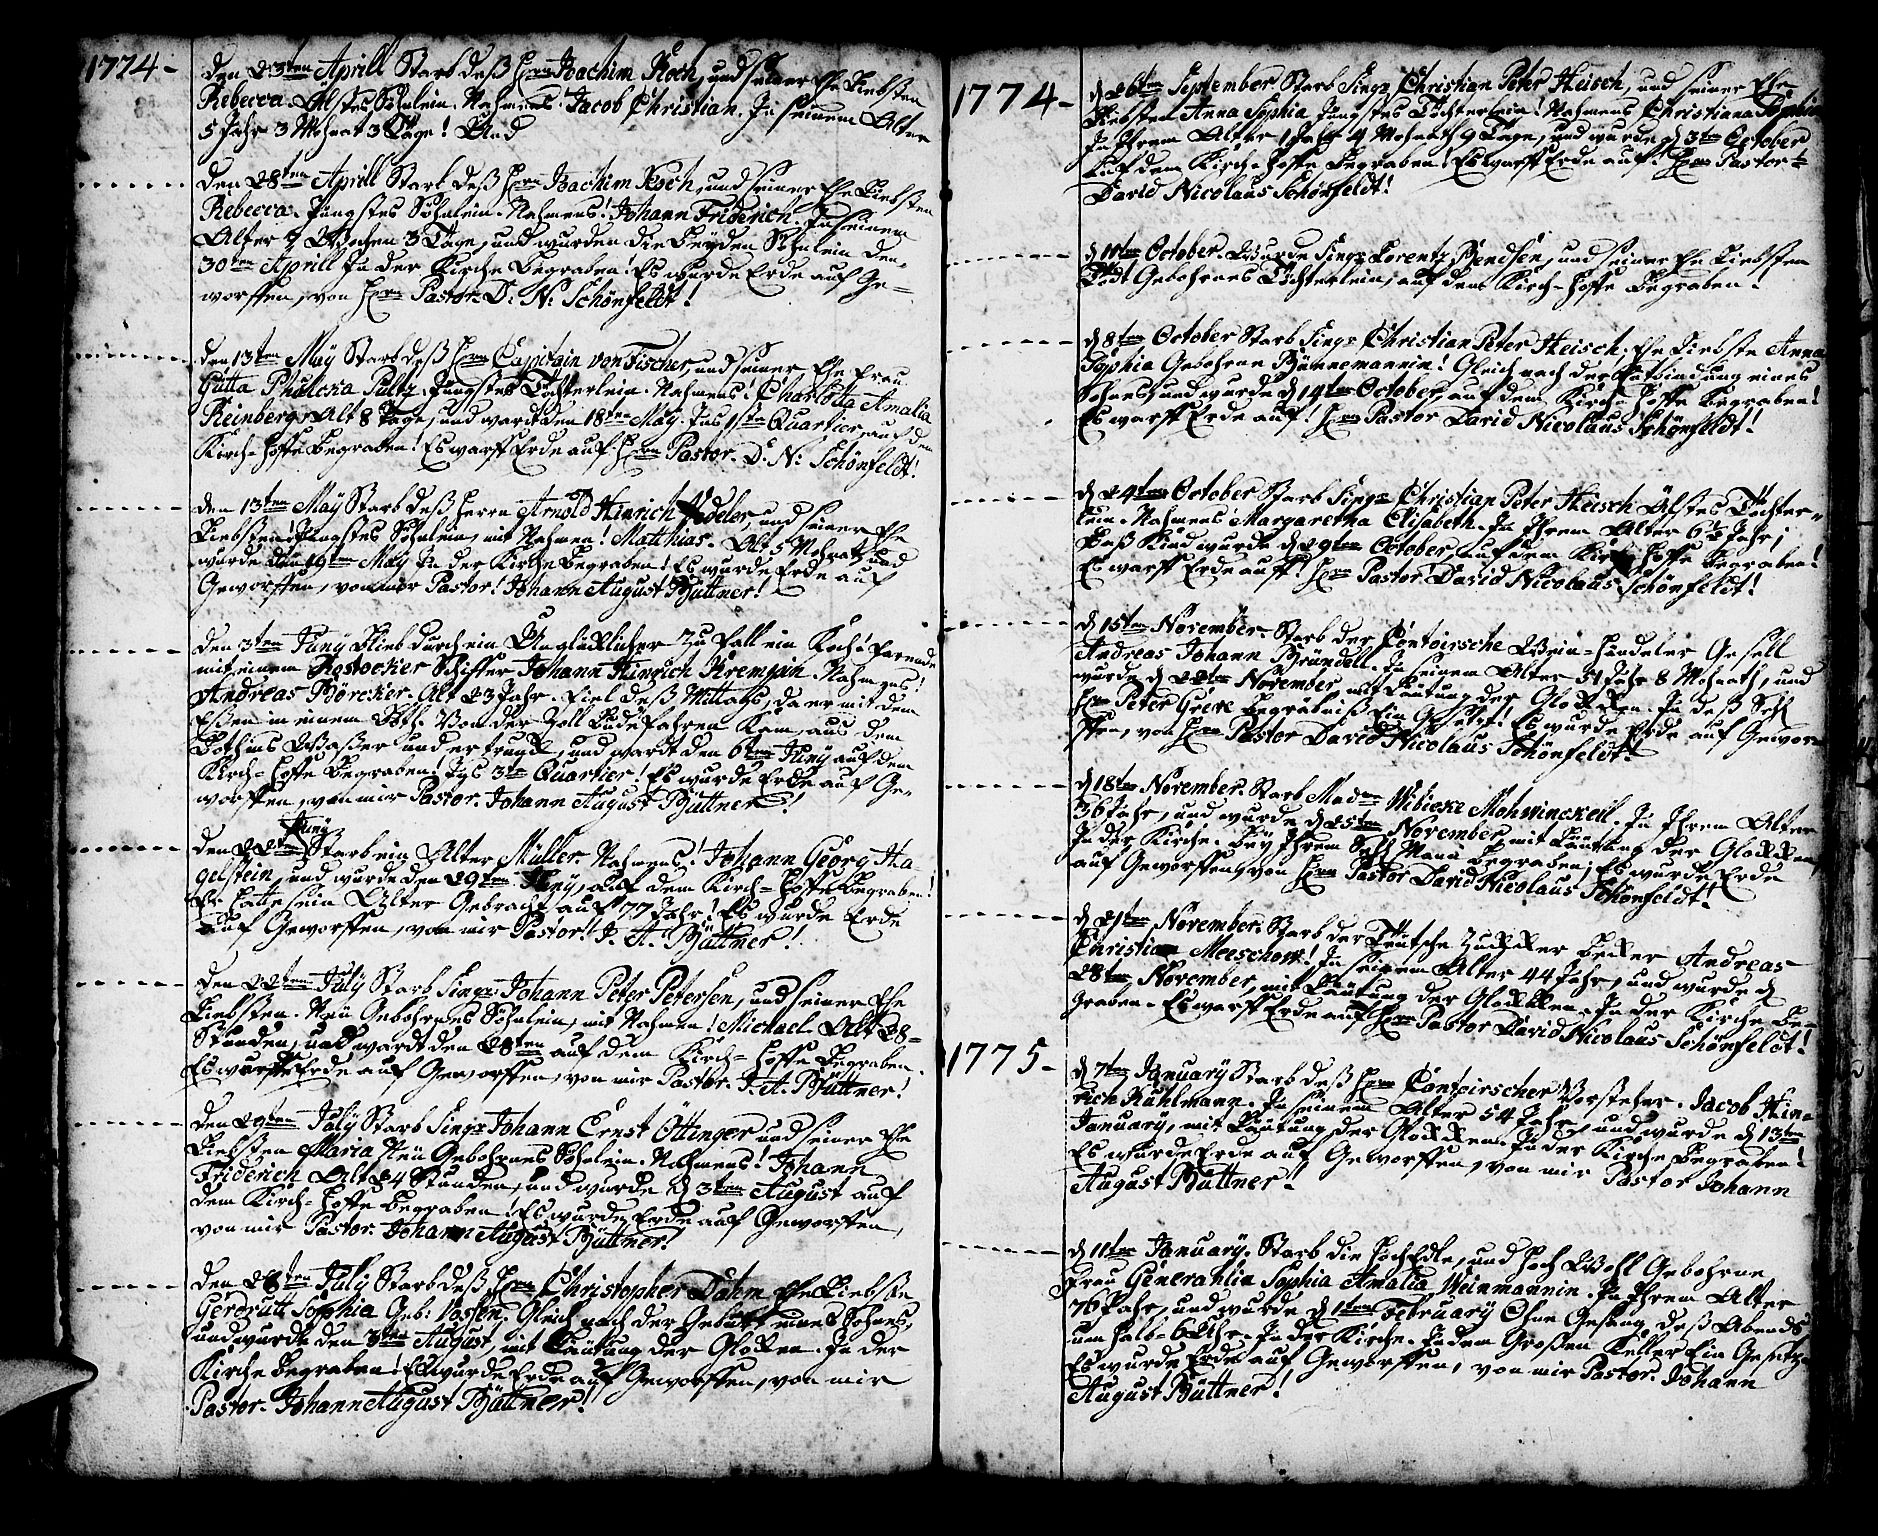 1774-
Den 23ten Aprill Starb deß Hrn Joachim Koch, und seiner Ehe Liebsten
Rebecca. Älstes Söhnlein. Nahmens! Jacob Christian. In seinem Alter
5 Jahr 3 Mohnat 3 Tage! Und
Den 28ten Aprill Starb deß Hrn Joachim Koch, und seiner Ehe Liebsten
Rebecca. Jüngstes Söhnlein. Nahmens! Johann Friderich. In seinem
Alter Wochen 3 Tage, und wurden die Beyden Söhnlein den
30ten Aprill In der Kirche Begraben! Es wurde Erde auf Ge-
worffen, von Hrn Pastor. D: N: Schönfeldt!
Den 13ten May Starb deß Hrn Capitain von Fischer, und seiner Ehe Frau
Gutta Phulcka Pultz. Jüngstes Töchterlein. Nahmens! Charlotta Amalia
Reinberg. Alt 8 Tage, und wardt den 18ten May. Ins 1ste Quartier, auf dem
Kirch-Hoffe Begraben! Es warff Erde auf Hrn Pastor. D: N: Schönfeldt!
Den 13ten May Starb deß Herrn Arnold Hinrich Fedeler, und seiner Ehe
Liebsten! Jüngstes Söhnlein, mit Nahmen! Matthias. Alt 5 Mohnath, und
wurde den 19ten May In der Kirche Begraben! Es wurde Erde auf
Geworffen, von mir Pastor! Johann August Büttner!
Den 3ten Juny Blieb durch ein Unglücklicher Zufall ein Koch! farende
mit einem Rostocker Schiffer Johann Hinrich Kremzin. Nahmens!
Andreas Börcker. Alt 23 Jahr. Fiel deß Mittags, da er mit dem
Eßen in einem Böth. Von der Zoll Bude fahren Kam, aus dem
Both ins Waßer und ertrunck, und wardt den 6ten Juny auf dem
Kirch-Hoffe Begraben! Ins 3te Quartier! Es wurde Erde auf Ge-
worffen, von mir Pastor. Johann August Büttner!
Juny
Den 22ten Starb ein Alter Müller. Nahmens! Johann Georg Ha
gelstein, und wurde den 29ten Juny, auf dem Kirch-Hoffe Begraben!
Er hatte sein Alter Gebracht auf 77 Jahr! Es wurde Erde
Auf Geworffen, von mir Pastor! J. A. Büttner!
Den 22ten July Starb Sing: Johann Peter Petersen, und seiner Ehe
Liebsten. Neu Gebohrnes Söhnlein, mit Nahmen! Michael. Alt 28-
Stunden, und wardt den 28ten auf dem Kirch-Hoffe Begraben.
Es wurde Erde auf Geworffen, von mir Pastor. J. A. Büttner!
Den 29ten July Starb Sing: Johann Ernst Öttinger und seiner Ehe
Liebsten Maria Neu Gebohrnes Söhnlein. Nahmens! Johann
Friderich Alt 24 Stunden, und wurde d 3ten August auf
dem Kirch-Hoffe Begraben! Es wurde Erde auf Geworffen,
von mir Pastor. Johann August Büttner!
Den 28ten July Starb deß Hrn Christopher Dahm Ehe Liebste
Gerdrutt Sophia Geb: Vosen. Gleich nach der Geburt eines Sohnes,
und wurde den 3ten August, mit Läutung der Glocken. In der
Kirche Begraben! Es wurde Erde auf Geworffen, von mir
Pastor. Johann August Büttner!
1774-
d 26ten September. Starb Sing: Christian Peter Heisch, und seiner Ehe
Liebsten Anna Sophia Jüngstes Töchterlein! Nahmens Christiana Sophia
In Ihrem Alter 1 Jahr 4 Mohnath 9 Tage, und wurde d 3ten October
Auf dem Kirch-Hoffe Begraben! Es warff Erde auf! Hrn Pastor-
David Nicolaus Schönfeldt!
d 10ten October. Wurde Sing: Lorentz Bendsen, und seiner Ehe Liebsten
Todt Gebohrnes Töchterlein, auf dem Kirch-Hoffe Begraben.
d 8ten October Starb Sing: Christian Peter Heisch. Ehe Liebste Anna
Sophia Gebohrne Bünnemannin! Gleich nach der Entbindung eines
Sohnes, und wurde d 14ten October, auf dem Kirch-Hoffe Begraben!
Es warff Erde auf! Hrn Pastor David Nicolaus Schönfeldt!
d 24ten October Starb Sing: Christian Peter Heisch Älstes Töchter-
lein. Nahmens Margaretha Elisabeth. In Ihrem Alter 6½ Jahr;
Daß Kind wurde d 29ten October, auf dem Kirch Hoffe Begraben!
Es warff Erde auff! Hrn Pastor David Nicolaus Schönfeldt!
d 15ten November. Starb der Contoirsche Wein-Händeler Gesell
Andreas Johann Bründell. In seinem Alter 31 Jahr 8 Mohnath, und
wurde d 22ten November, mit Läutung der Glocken. In deß Sehl
Hrn Peter Greve Begräbniß Ein Gesetzt! Es wurde Erde auf Gewor-
ffen, von Hrn Pastor David Nicolaus Schönfeldt!
d 18ten November. Starb Madm Wibicke Mohwinckell. In Ihrem Alter
36 Jahr, und wurde d 25ten November mit Läutung der Glocken,
In der Kirche. Bey Ihrem Sehl Mann Begraben; Es wurde Erde
auf Geworffen, von Hrn Pastor David Nicolaus Schönfeldt!
d 21ten November. Starb der Deutsche Zucker Becker Andreas
Christian Meeschow! In seinem Alter 44 Jahr, und wurde d
28ten November, mit Läutung der Glocken. In der Kirche Be-
graben. Es warff Erde auf Hrn Pastor David Nicolaus Schönfeldt!
1775-
d 7ten January Starb deß Hrn Contoirscher Vorsteher. Jacob Hin-
rich Kuhlmann. In seinem Alter 54 Jahr, und wurde d 13ten
January, mit Läutung der Glocken. In der Kirche Begraben!
Es wurde Erde auf Geworffen, von mir Pastor Johann
August Büttner!
d 11ten January. Starb die HochEdle, und Hoch Wohl Gebohrne
Frau Generahlia Sophia Amalia Weinmannin. In Ihrem Alter
76 Jahr, und wurde d 1ten February Ohne Gesang, deß Abends
um Halb-6 Uhr. In der Kirche. In dem Großen Keller Ein Gesetz-
Es wurde Erde auf Geworffen, von mir Pastor. Johann
August Büttner!